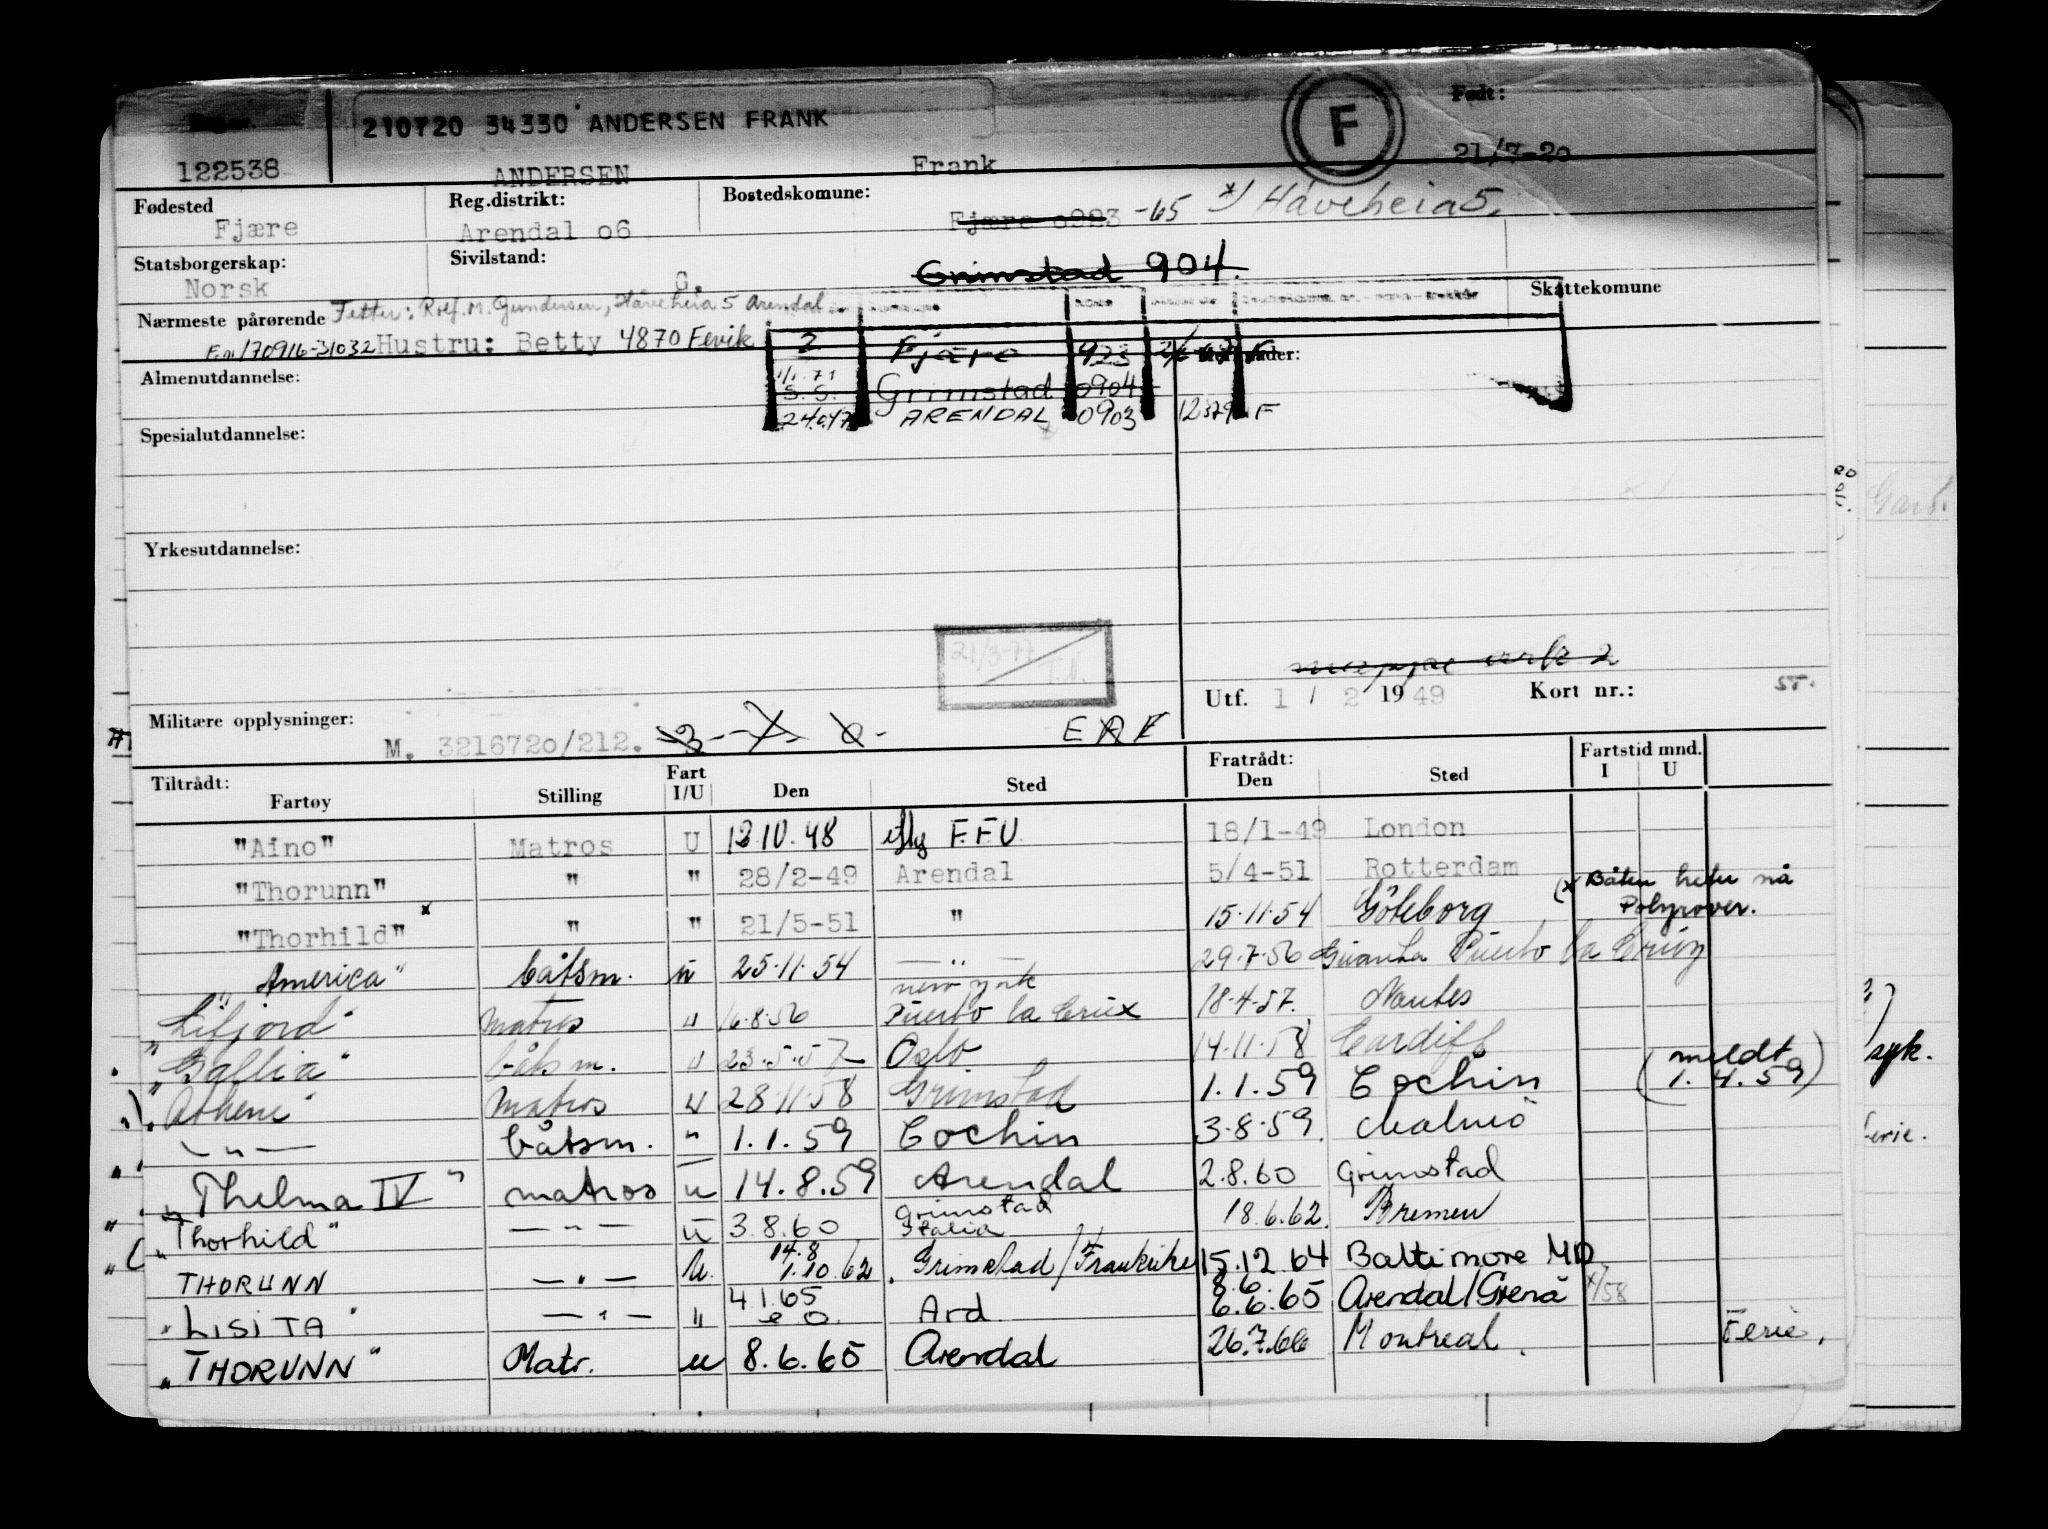 210720 34330 ANDERSEN FRANK
F
Født:
122538
ANDERSEN
Frank
21/7-20
Fødested
Reg.distrikt:
Bostedskomune:
Fjære
Arendal o6
Fjære o923 -65 *) Håveheia 5.
Statsborgerskap:
Sivilstand:
Grimstad 904.
Norsk
G.
Skattekomune
Nærmeste pårørende Fetter: Rolf. M. Gundersen, Håveheia 5 Arendal
F.nr 170916-31032 Hustru: Betty 4870 Fevik
2 Fjære 923
Almenutdannelse:
1/1.71
S.S. Grimstad 0904
ARENDAL 0903 12379 F
Spesialutdannelse:
Yrkesutdannelse:
21/3-77
T.A.
mappe ark 2
Utf. 1 / 2 19 49 Kort nr.: ST.
Militære opplysninger:
M. 3216720/212.
Tiltrådt:
Fartøy
Stilling
Fart
I/U
Den
Sted
Fratrådt:
Den
Sted
Fartstid mnd.
I U
"Aino" Matros U 13.10.48 F.F.U. 18/1-49 London
"Thorunn" " " 28/2-49 Arendal 5/4-51 Rotterdam
(x Båten heter nå
Polyrover.
"Thorhild" x " " 21/5-51 " 15.11.54 Göteborg
"America" båtsm. u 25.11.54 — " — 29.7.56 Guanta Puerto la Cruz
new york
"Lifjord" matros " 16.8.56 Puerto la Crux 18.4.57. Nantes
"Gallia" båtsm. " 23.5.57 Oslo 14.11.58 Cardiff
"Athene" matros u 28.11.58 Grimstad 1.1.59 Cochin (meldt 1.4.59)
— " — båtsm. " 1.1.59 Cochin 3.8.59. Malmö
"Thelma IV" matros u 14.8.59 Arendal 2.8.60 Grimstad
"Thorhild" — " — u 3.8.60 Grimstad Italia 18.6.62. Bremen
THORUNN — " — u. 14.8 1.10.62. Grimstad/Frankrike 15.12.64 Baltimore MD
"LISITA" — " — " 4.1.65 Ard. 8.6. 6.6.65 Arendal/Grenå
"THORUNN" Matr. u 8.6.65 Arendal 26.7.66 Montreal. Ferie.
syk.
ferie.